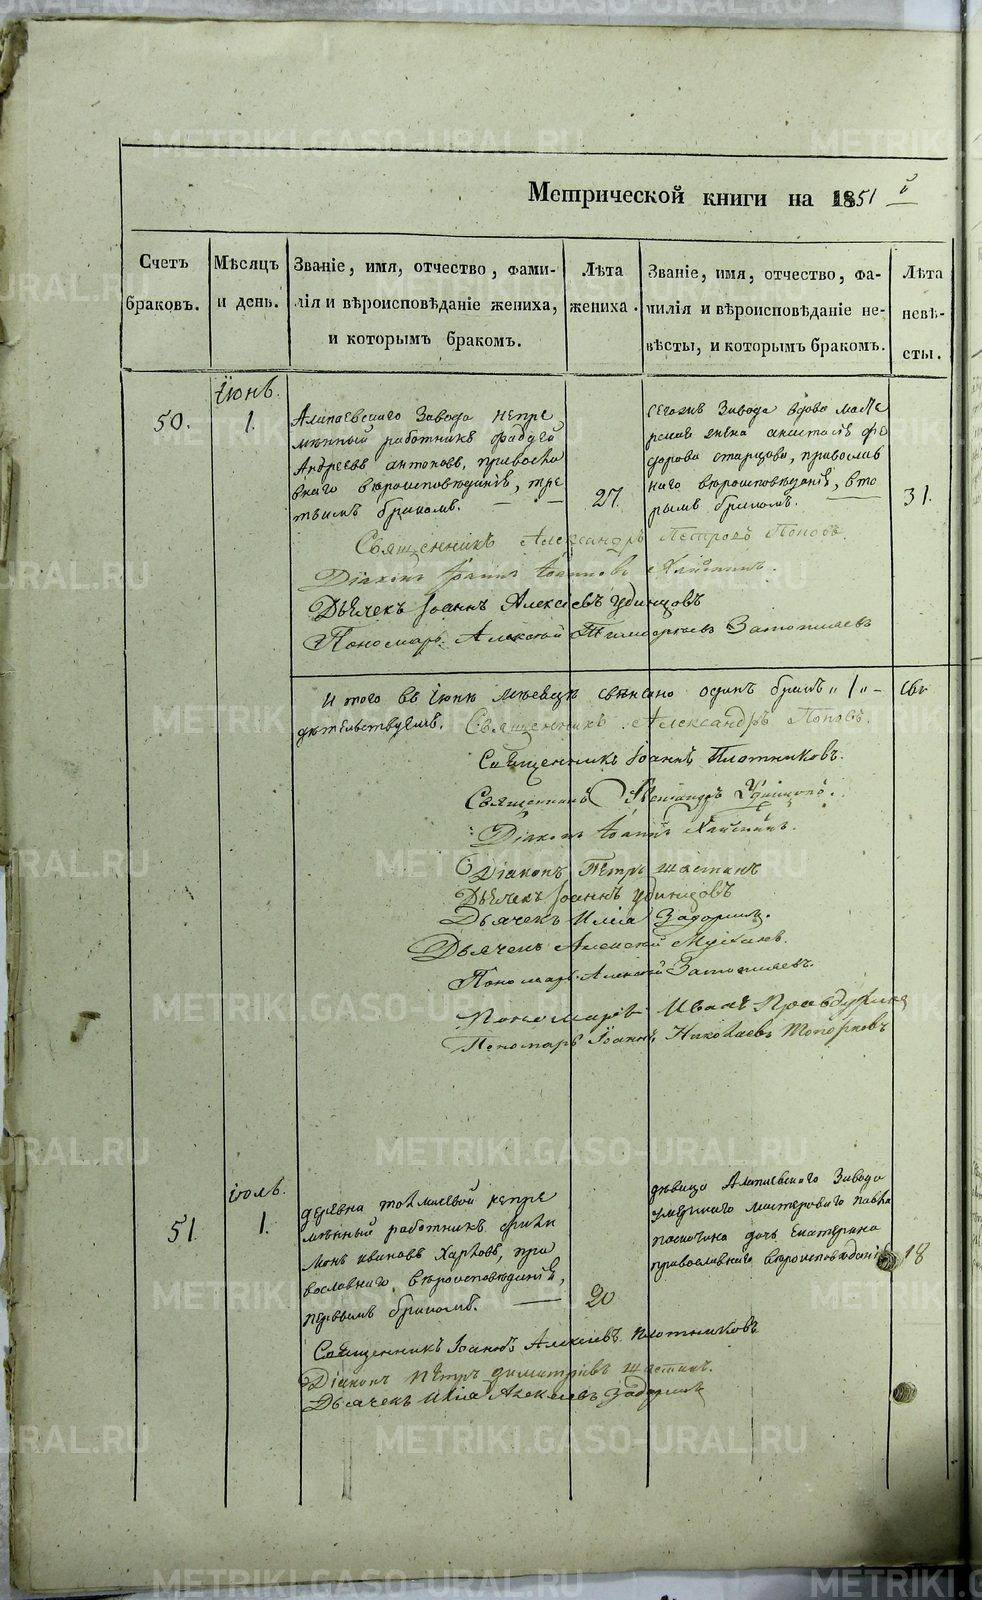 Метрической книги на 1851 й
Счетъ браковъ.
Мѣсяцъ и день.
Званіе, имя, отчество, фами-
лія и вѣроисповѣданіе жениха,
и которымъ бракомъ.
Лѣта жениха.
Званіе, имя, отчество, фа-
милія и вѣроисповѣданіе не-
вѣсты, и которымъ бракомъ.
Лѣта невѣ-
сты.
Іюнь.
50.
1.
Алапаевскаго Завода непре
мѣнный работникъ Фадѣй
Андреевъ Антоновъ, правосла
внаго вѣроисповѣданія, тре
тьимъ бракомъ.
27.
сегожъ Завода вдова
жена Ѳе
дорова старцова, православ
наго вѣроисповѣданія, вто
рымъ бракомъ.
31.
Священникъ Александръ Петровъ Поповъ.
Діаконъ Іоаннъ
Дьячекъ Іоаннъ Алексѣевъ Удинцовъ
Пономарь Алексѣй Тимофеевъ Затопляевъ
И того въ Іюнѣ мѣсяцѣ свѣнчано одинъ бракъ „1„ – сви
дѣтельствуемъ.
Священникъ Александръ Поповъ.
Священникъ Іоаннъ Плотниковъ.
Священникъ Александръ Удинцовъ.
Діаконъ Іоаннъ
Діаконъ Петръ Шастинъ
Дьячекъ Іоаннъ Удинцовъ
Дьячекъ Илія Задоринъ.
Дьячекъ Алексѣй
Пономарь Алексѣй Затопляевъ.
Пономарь Иванъ Правдухинъ
Пономарь Іоаннъ Николаевъ Топорковъ
Іюль.
51.
1.
деревни Толмачевой непре
мѣнный работникъ Фили
монъ Ивановъ Харловъ, пра
вославнаго вѣроисповѣданія,
первымъ бракомъ.
20
дѣвица Алапаевскаго Завода
умершаго мастероваго Павла
дочь Екатерина
православнаго вѣроисповѣданія
18
Священникъ Іоаннъ Алексѣевъ Плотниковъ
Діаконъ Петръ Димитріевъ Шастинъ.
Дьячекъ Илія Алексѣевъ Задоринъ
METRIKI.GASO-URAL.RU